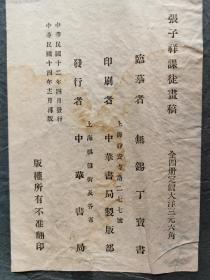 張子祥課徒畫稿
全四冊定價大洋三元六角
臨摹者 無錫丁寶書
上海靜安寺路二七七號
印刷者 中華書局製版部
上海棋盤街及各省
發行者 中華書局
中華民國十二年四月發行
中華民國十四年三月再版
版權所有不准翻印